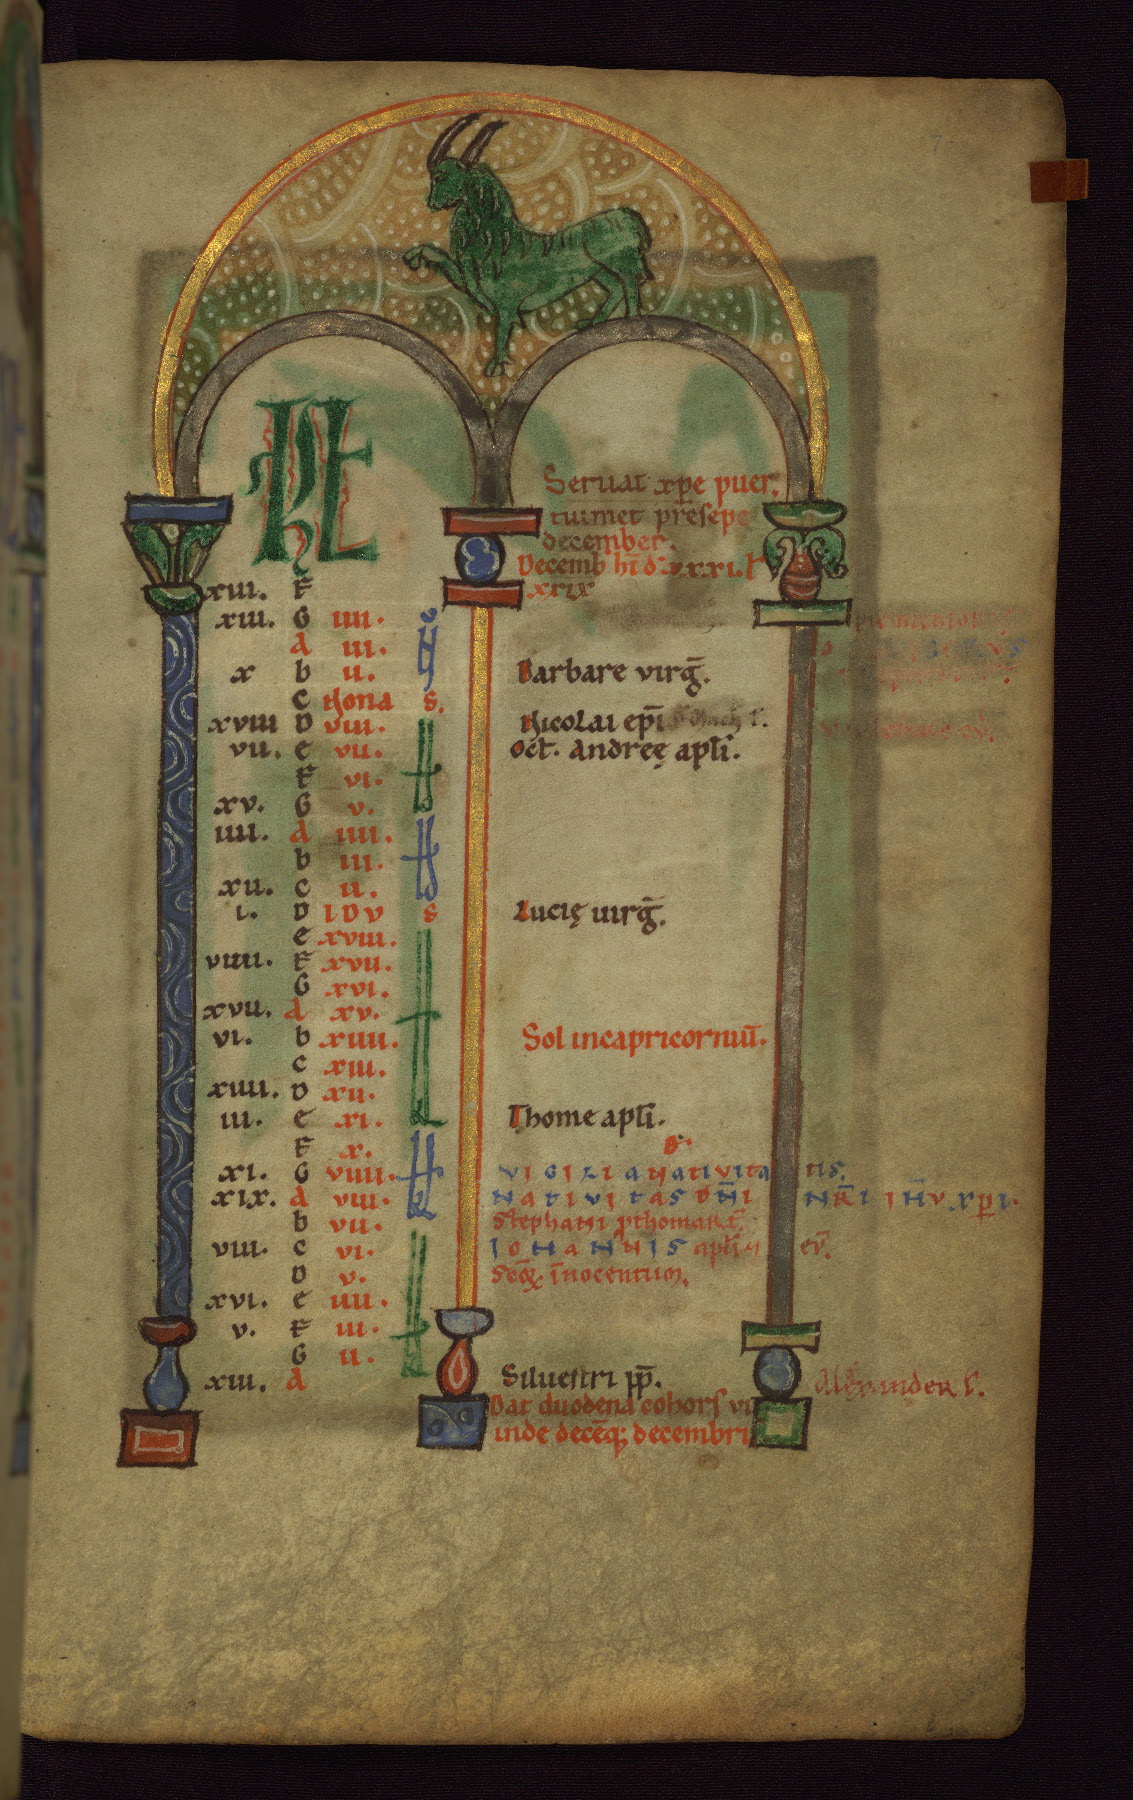 7
KL
Seruat xpe puer.
tuimet presepe
december.
Decemb hı̄ d̄. xxxi. l̄
xxix
xiii. F
xiii. G iiii. N̄
A iii.
x b ii. Barbare virḡ.
c Nona s.
xviii D viii. Nicolai ep̄i
vii. e vii. Oct̄. Andreę apl̄i.
F vi. Id
xv. G v.
iiii. A iiii. Id
b iii.
xii. c ii.
i. D IDV s Lucię uirḡ.
e xviii.
viiii. F xvii.
G xvi.
xvii. A xv. kl
vi. b xiiii. Sol incapricornıū.
c xiii.
xiiii. D xii.
iii. e xi. Thome apl̄i.
F x.
xi. G viiii. kl VIGILIA Nativitatis.
xix. A viii. NATIVITAS DN̄I NR̄I IHV̄ XP̄I.
b vii. Stephani p̄thomart̄.
viii. c vi. kl IOHANNIS apl̄i ev̄.
D v. Sc̄ōꝝ. īnocentum.
xvi. e iiii.
v. F iii. kl
G ii.
xiii. A Siluestri pp̄. Alexander l̄.
Dat duodena cohors vi
inde decēq; decembri